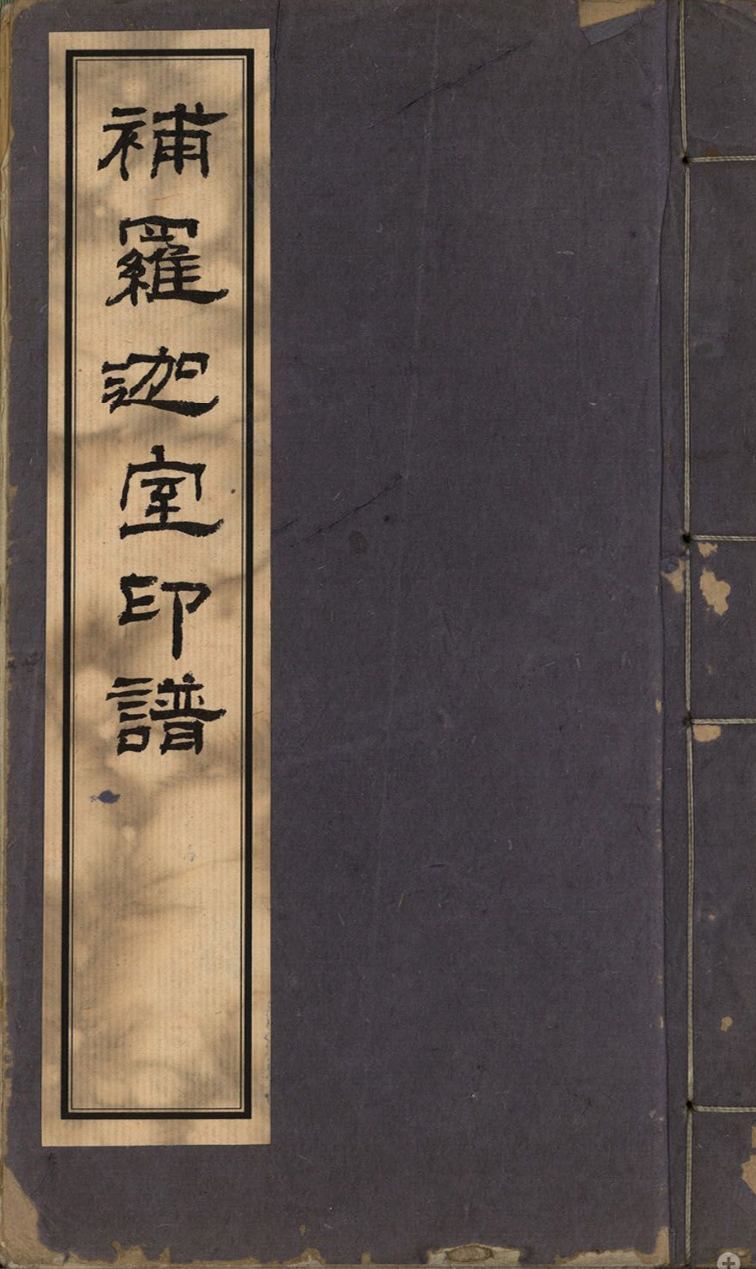 補羅迦室印譜